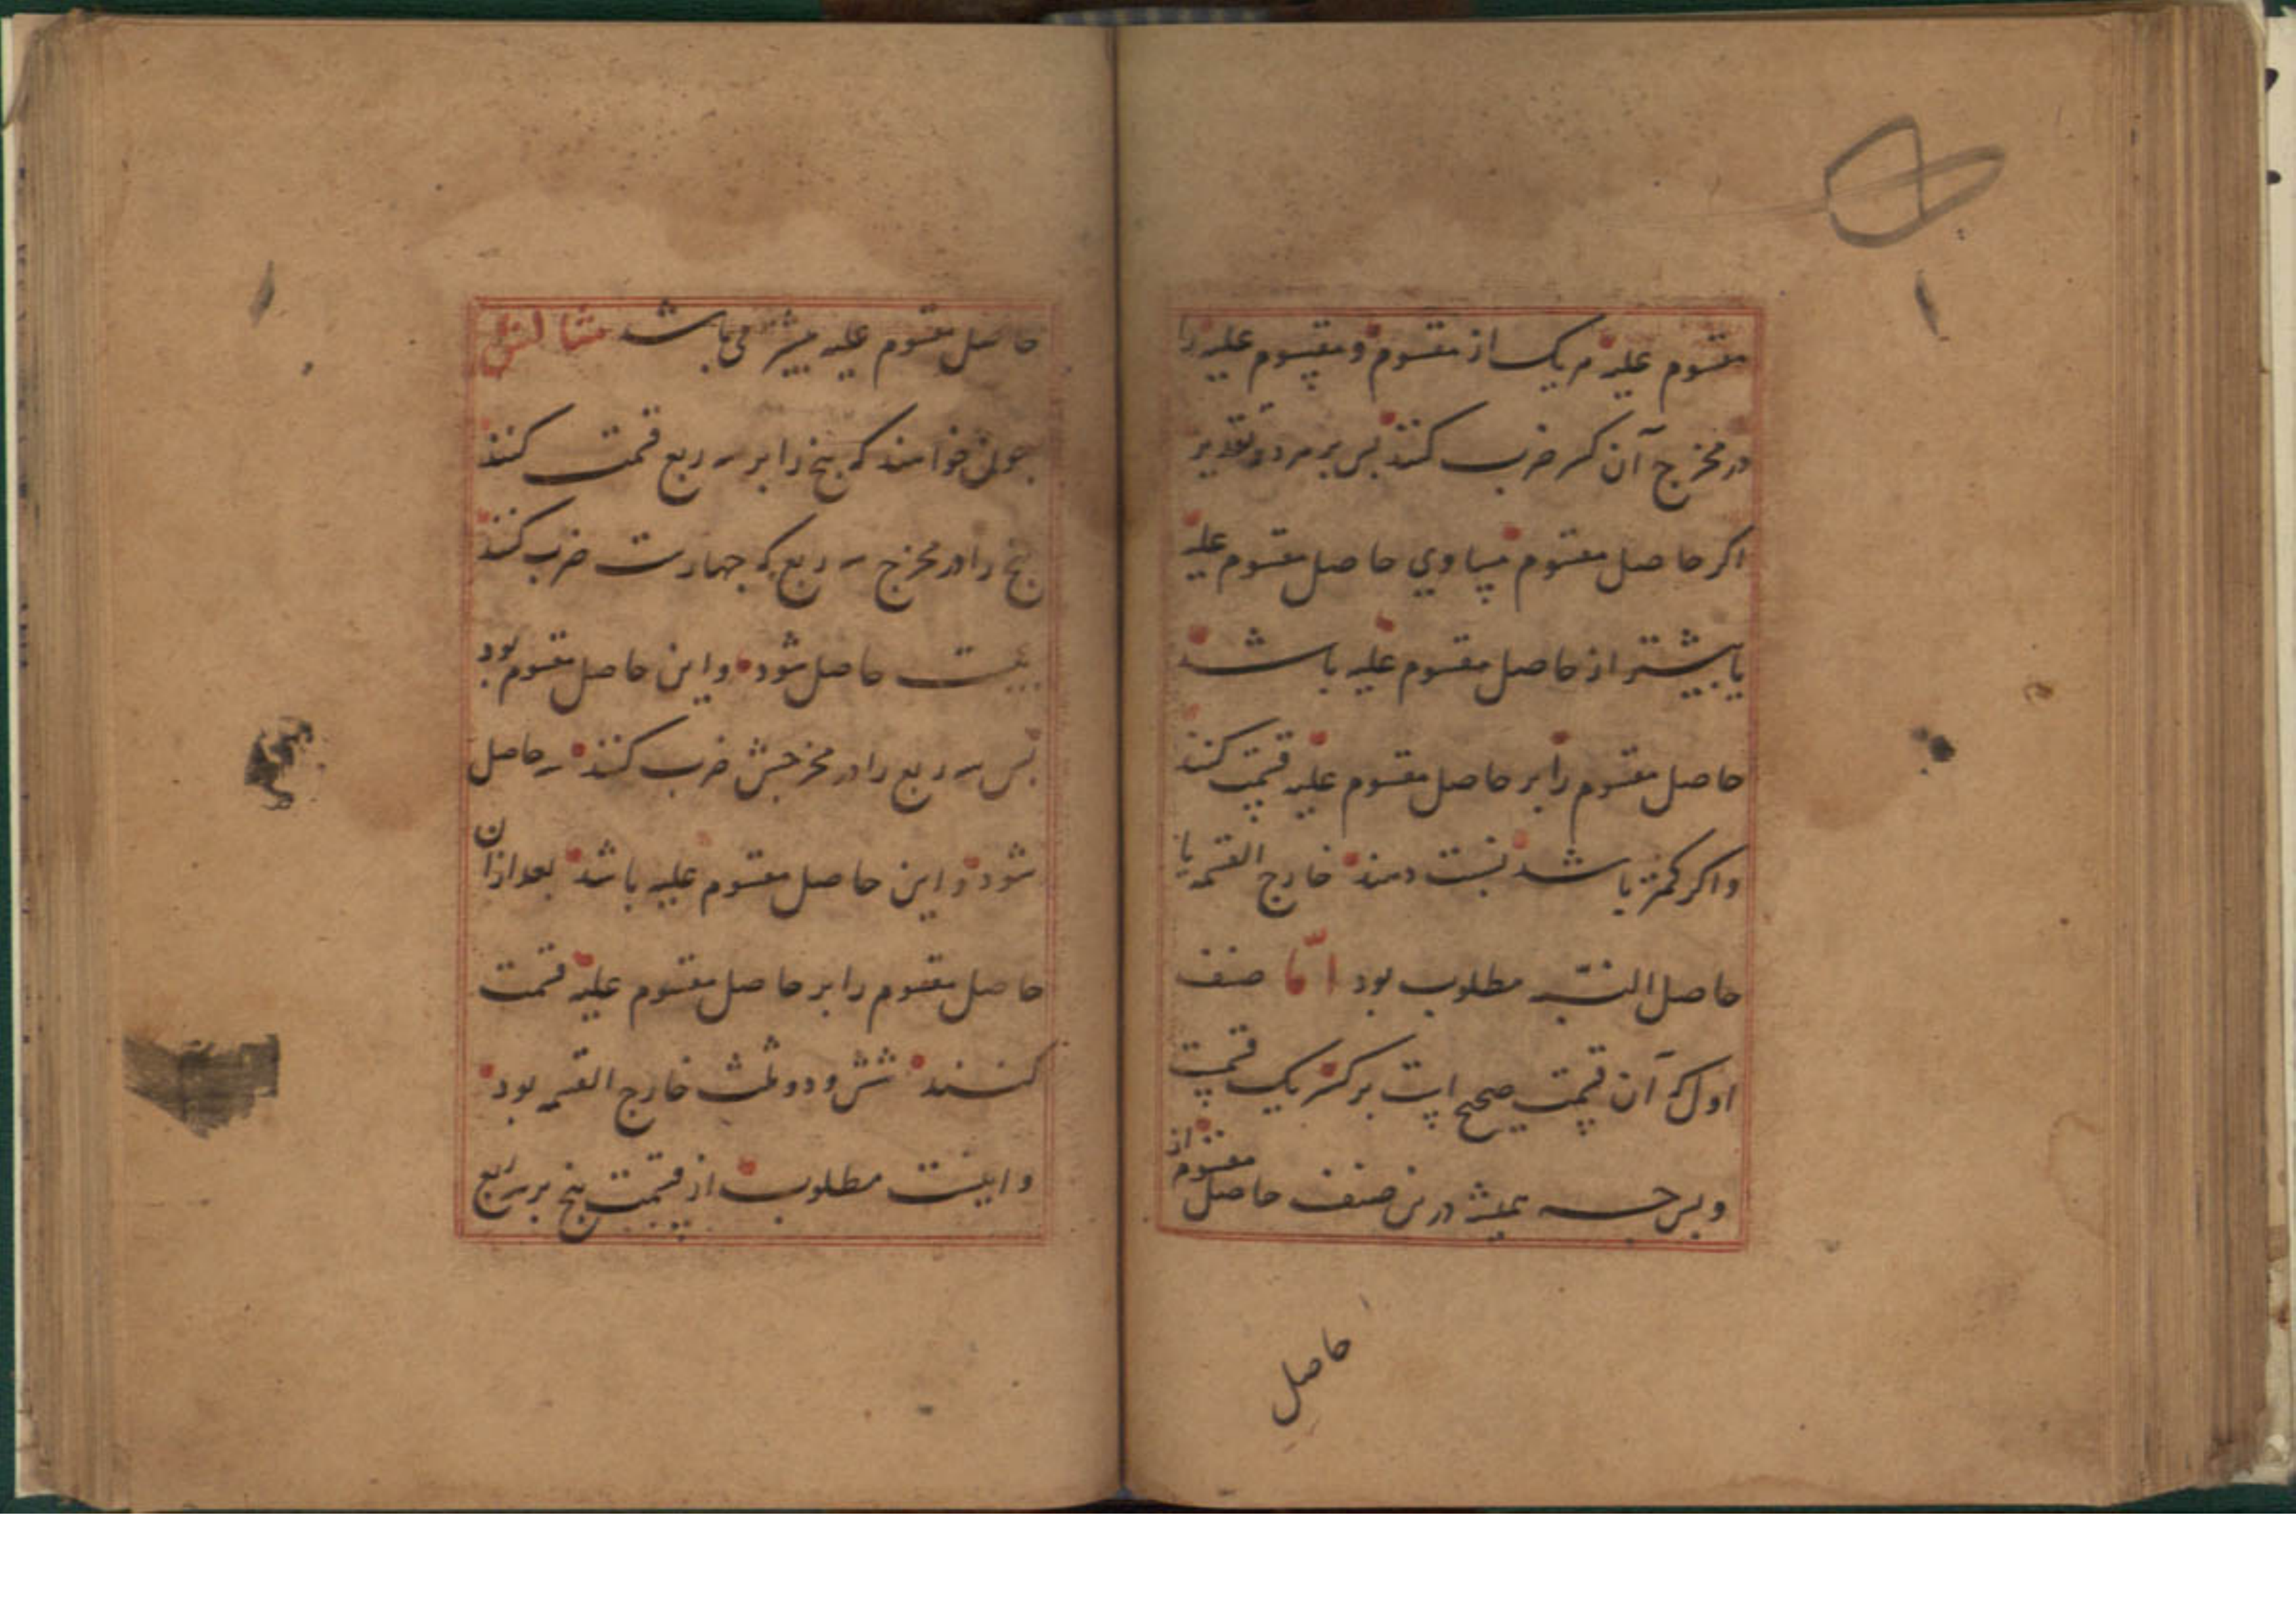 مقسوم علیه هر یک از مقسوم و مقسوم علیه را
در مخرج آن کسر ضرب کنند بس بر هر دو تقدیر
اکر حاصل مقسوم مساوي حاصل مقسوم علیه
یا بیشتر از حاصل مقسوم علیه باشد
حاصل مقسوم را بر حاصل مقسوم علیه قسمت کنند
و اکر کمتر باشد نسبت دهند خارج القسمه یا
حاصل النسبه مطلوب بود امّا صنف
اول که آن قسمت صحیح است بر کسر یک قسمت
و بس جه همیشه درین صنف حاصل مقسوم از
حاصل
حاصل مقسوم علیه بیشتر می باشد مثالش
جون خواهند که بنج را بر سه ربع قسمت کنند
بنج را در مخرج سه ربع که جهارست ضرب کنند
بیست حاصل شود و این حاصل مقسوم بود
بس سه ربع را در مخرجش ضرب کنند سه حاصل
شود و این حاصل مقسوم علیه باشد بعد ازان
حاصل مقسوم را بر حاصل مقسوم علیه قسمت
کنند شش و دو ثلث خارج القسمه بود
و اینست مطلوب از قسمت بنج بر سه ربع